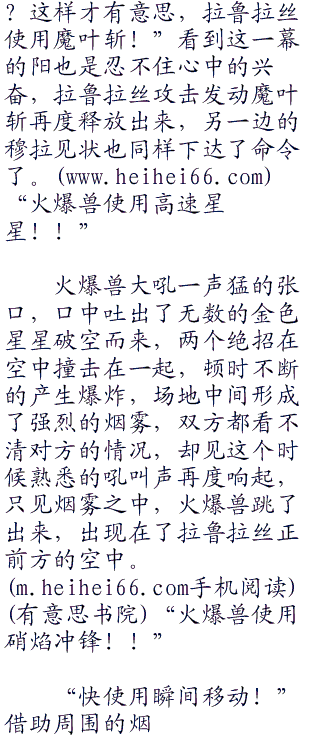 ？这样才有意思，拉鲁拉丝
使用魔叶斩！”看到这一幕
的阳也是忍不住心中的兴
奋，拉鲁拉丝攻击发动魔叶
斩再度释放出来，另一边的
穆拉见状也同样下达了命令
了。(www.heihei66.com)
“火爆兽使用高速星
星！！”
火爆兽大吼一声猛的张
口，口中吐出了无数的金色
星星破空而来，两个绝招在
空中撞击在一起，顿时不断
的产生爆炸，场地中间形成
了强烈的烟雾，双方都看不
清对方的情况，却见这个时
候熟悉的吼叫声再度响起，
只见烟雾之中，火爆兽跳了
出来，出现在了拉鲁拉丝正
前方的空中。
(m.heihei66.com手机阅读)
(有意思书院)“火爆兽使用
硝焰冲锋！！”
“快使用瞬间移动！”
借助周围的烟